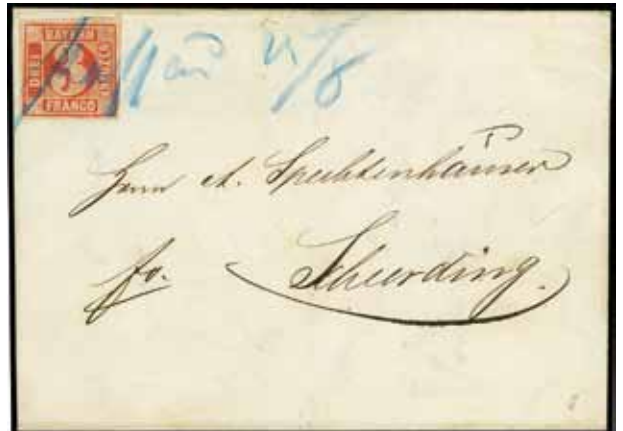 BAYERN
DREI 3 KREUZER
FRANCO
11/8
Herrn A. Spechtenhäuser
fo. Scheerding.